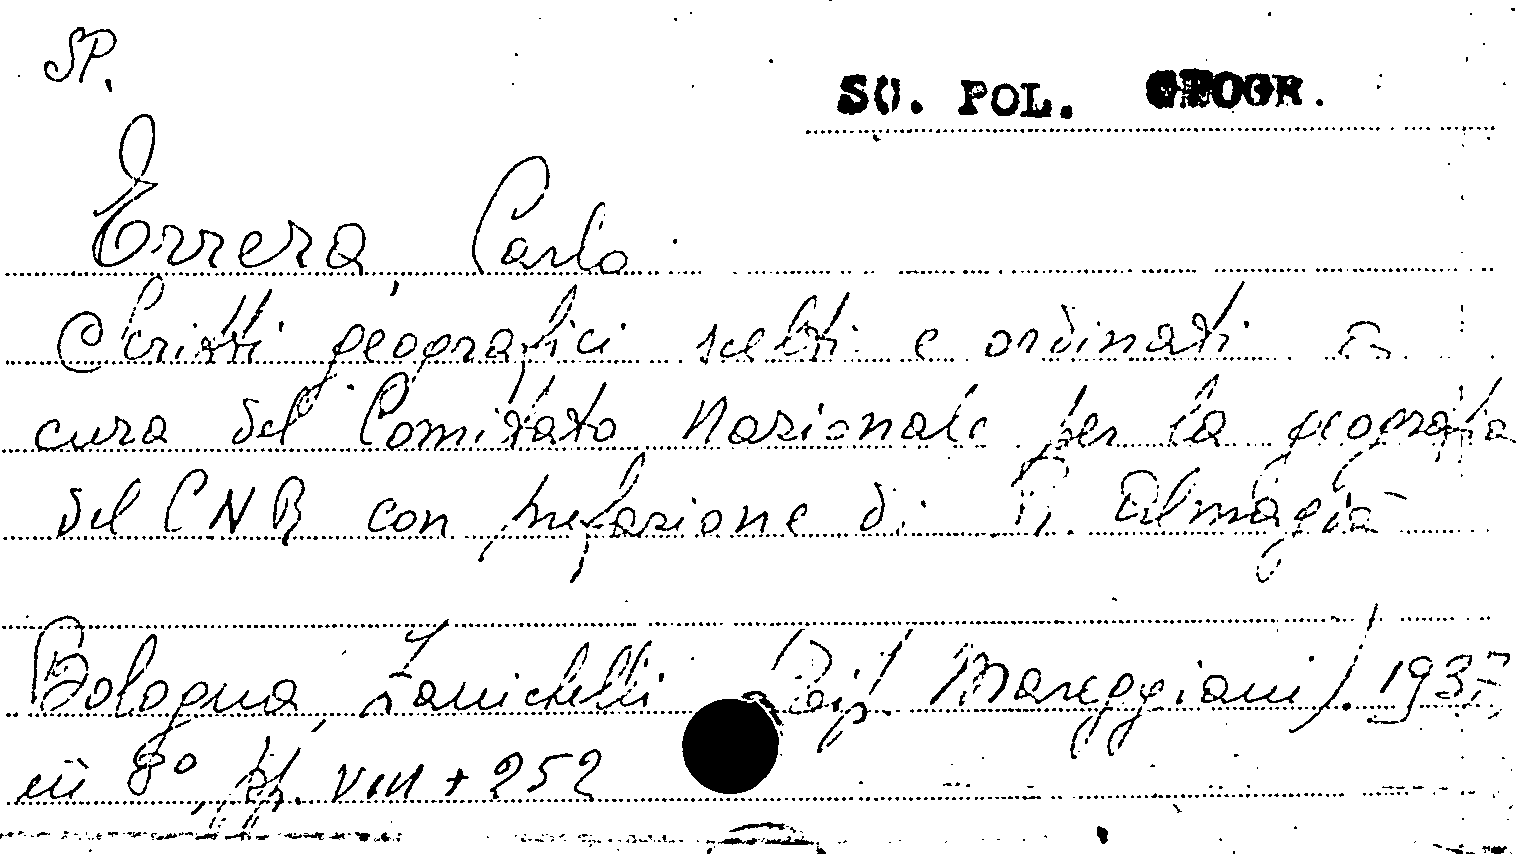 SP.
SC. POL. GEOGR.
Errera, Carlo
Scritti geografici scelti e ordinati a
cura del Comitato Nazionale per la geografia
del CNR con prefazione di R. Almagià
Bologna, Zanichelli (Tip. Mareggiani). 1937,
in 8°, pp. VIII + 252